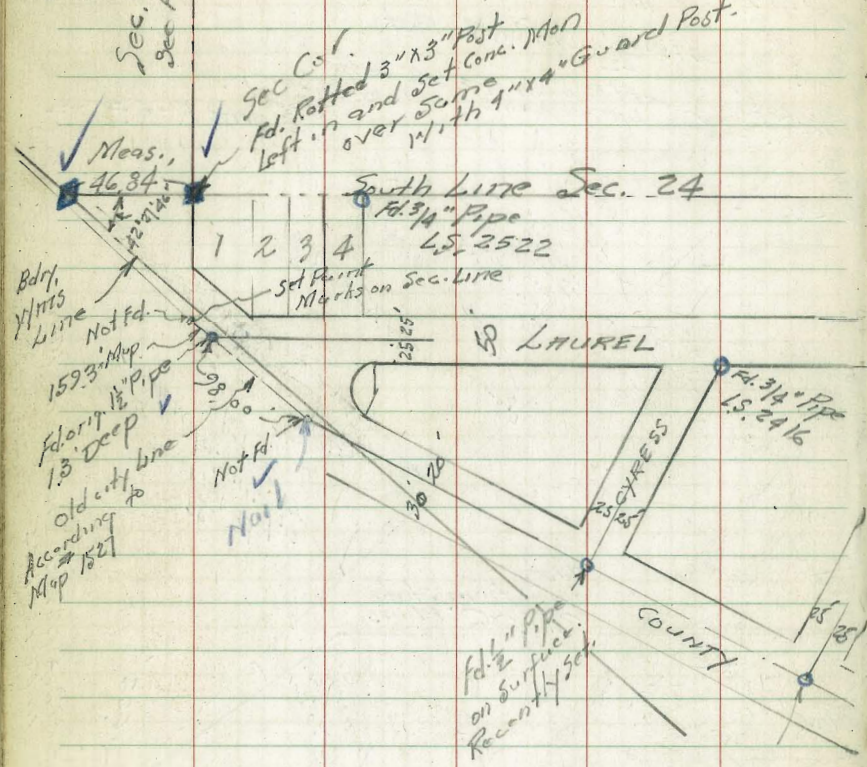 Sec.
Sec Cor.
Fd. Rotted 3"x3" Post
Left in and Set Conc. Mon
over Same
With 4"x4" Guard Post.
Meas.,
46.84
42°21'46"
South Line Sec. 24
Fd. 3/4" Pipe
L.S. 2522
1 2 3 4
Set Point
Marks on Sec. Line
Bdry.
Line
Not Fd.
159.3' Map
Fd. orig. 1½" Pipe
1.3' Deep
98.60
Old city Line
According to
Map # 1527
Not Fd.
Nail
25' 25'
50' LAUREL
Fd. 3/4" Pipe
L.S. 2416
CYRESS
25' 25'
30' 20'
Fd. ½" Pipe
on Surface.
Recently Set.
COUNTY
25' 25'